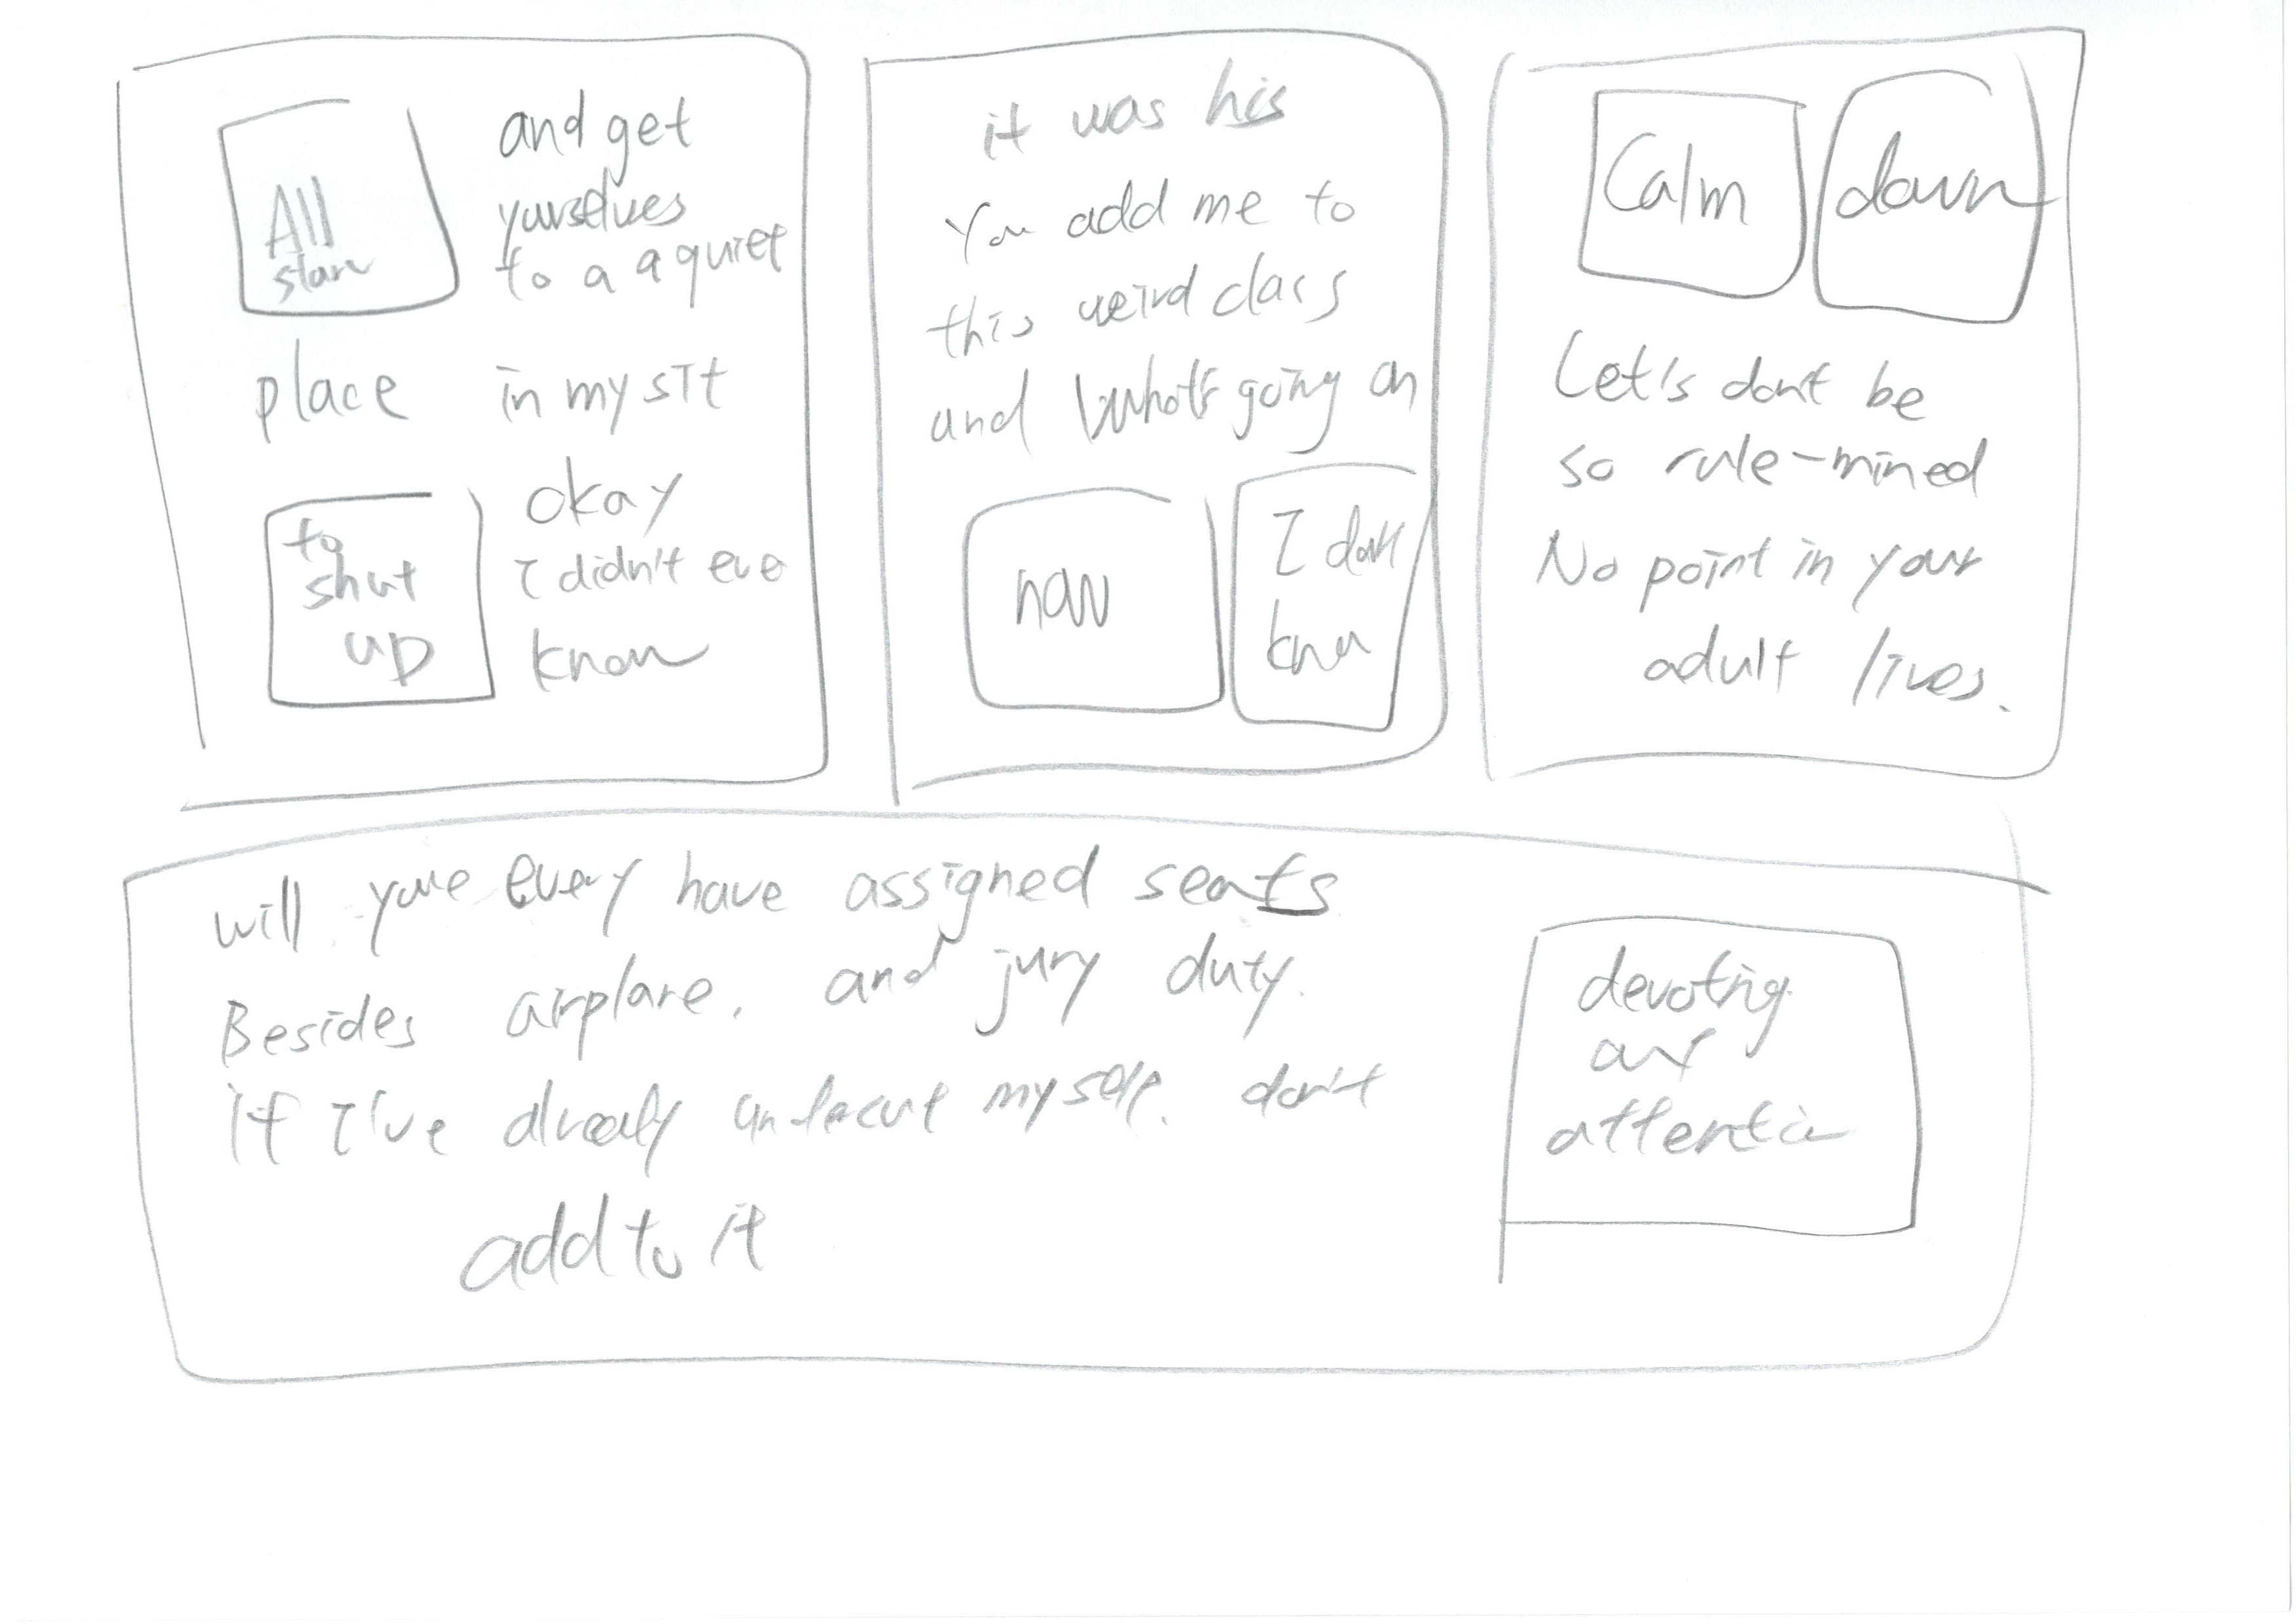 All
stare
and get
yourselves
to a a quiet
place in my sit
to
shut
up
okay
I didn't eve
know
it was his
You add me to
this weird class
and what's going on
now
I don't
know
Calm
down
Let's don't be
so rule-mined
No point in your
adult lives.
will you've every have assigned seats
Besides airplane, and jury duty.
if I've already undercut myself. don't
add to it
devoting
attentio